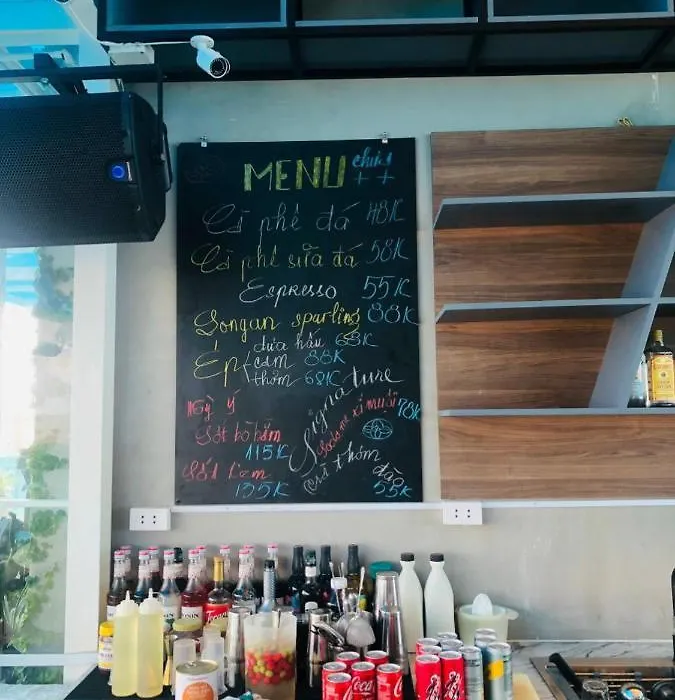 MENU ++
Cà phê đá 48K
Cà phê sữa đá 58K
Espresso 55K
Longan sparling 88K
Ép dưa hấu 68K
cam 88K
thơm 68K
Signature
Mỳ ý
Sốt bò bằm
115K
Sốt kem
135K
Soda me xí muội 78K
thơm
đào
55K
Coca
Coca